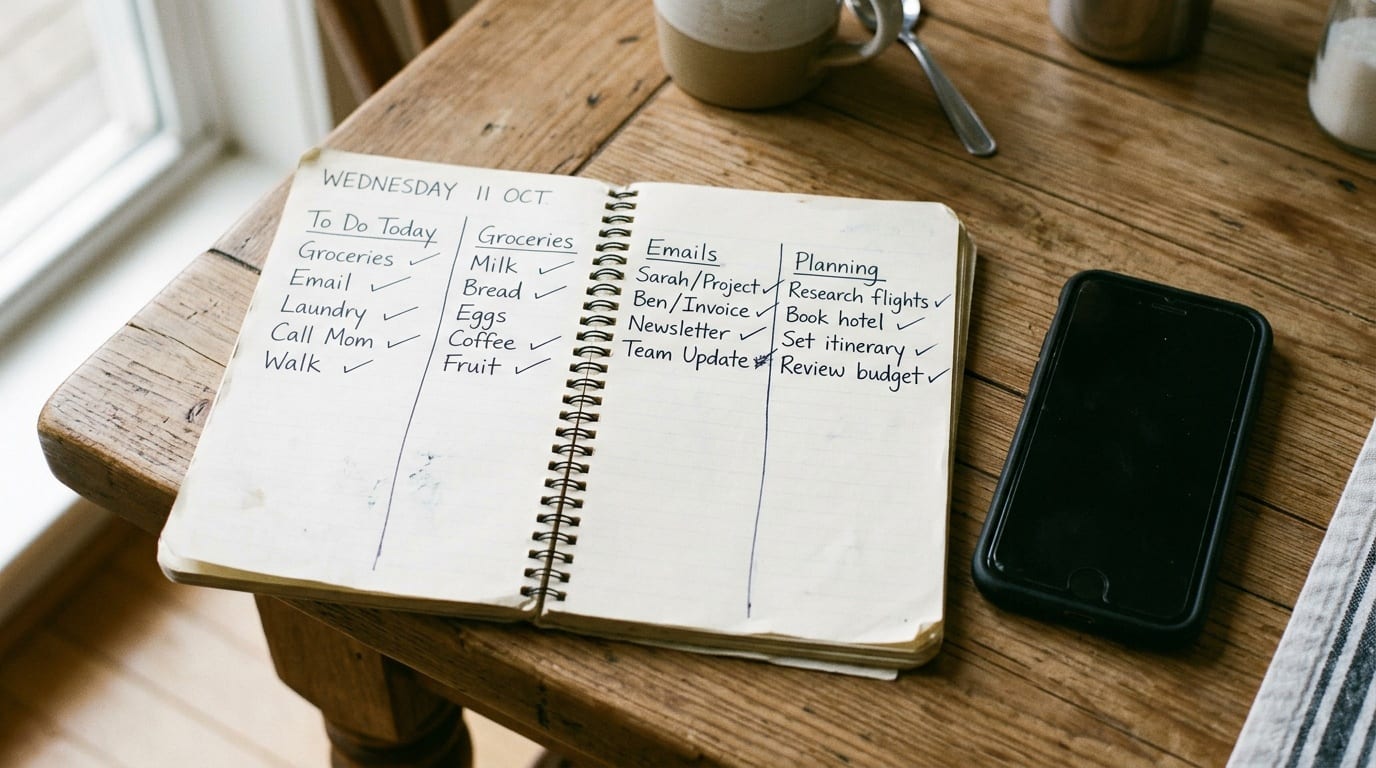 WEDNESDAY 11 OCT.
To Do Today
Groceries ✓
Email ✓
Laundry ✓
Call Mom ✓
Walk ✓
Groceries
Milk ✓
Bread ✓
Eggs
Coffee ✓
Fruit ✓
Emails
Sarah/Project ✓
Ben/Invoice ✓
Newsletter ✓
Team Update
Planning
Research flights ✓
Book hotel ✓
Set itinerary ✓
Review budget ✓